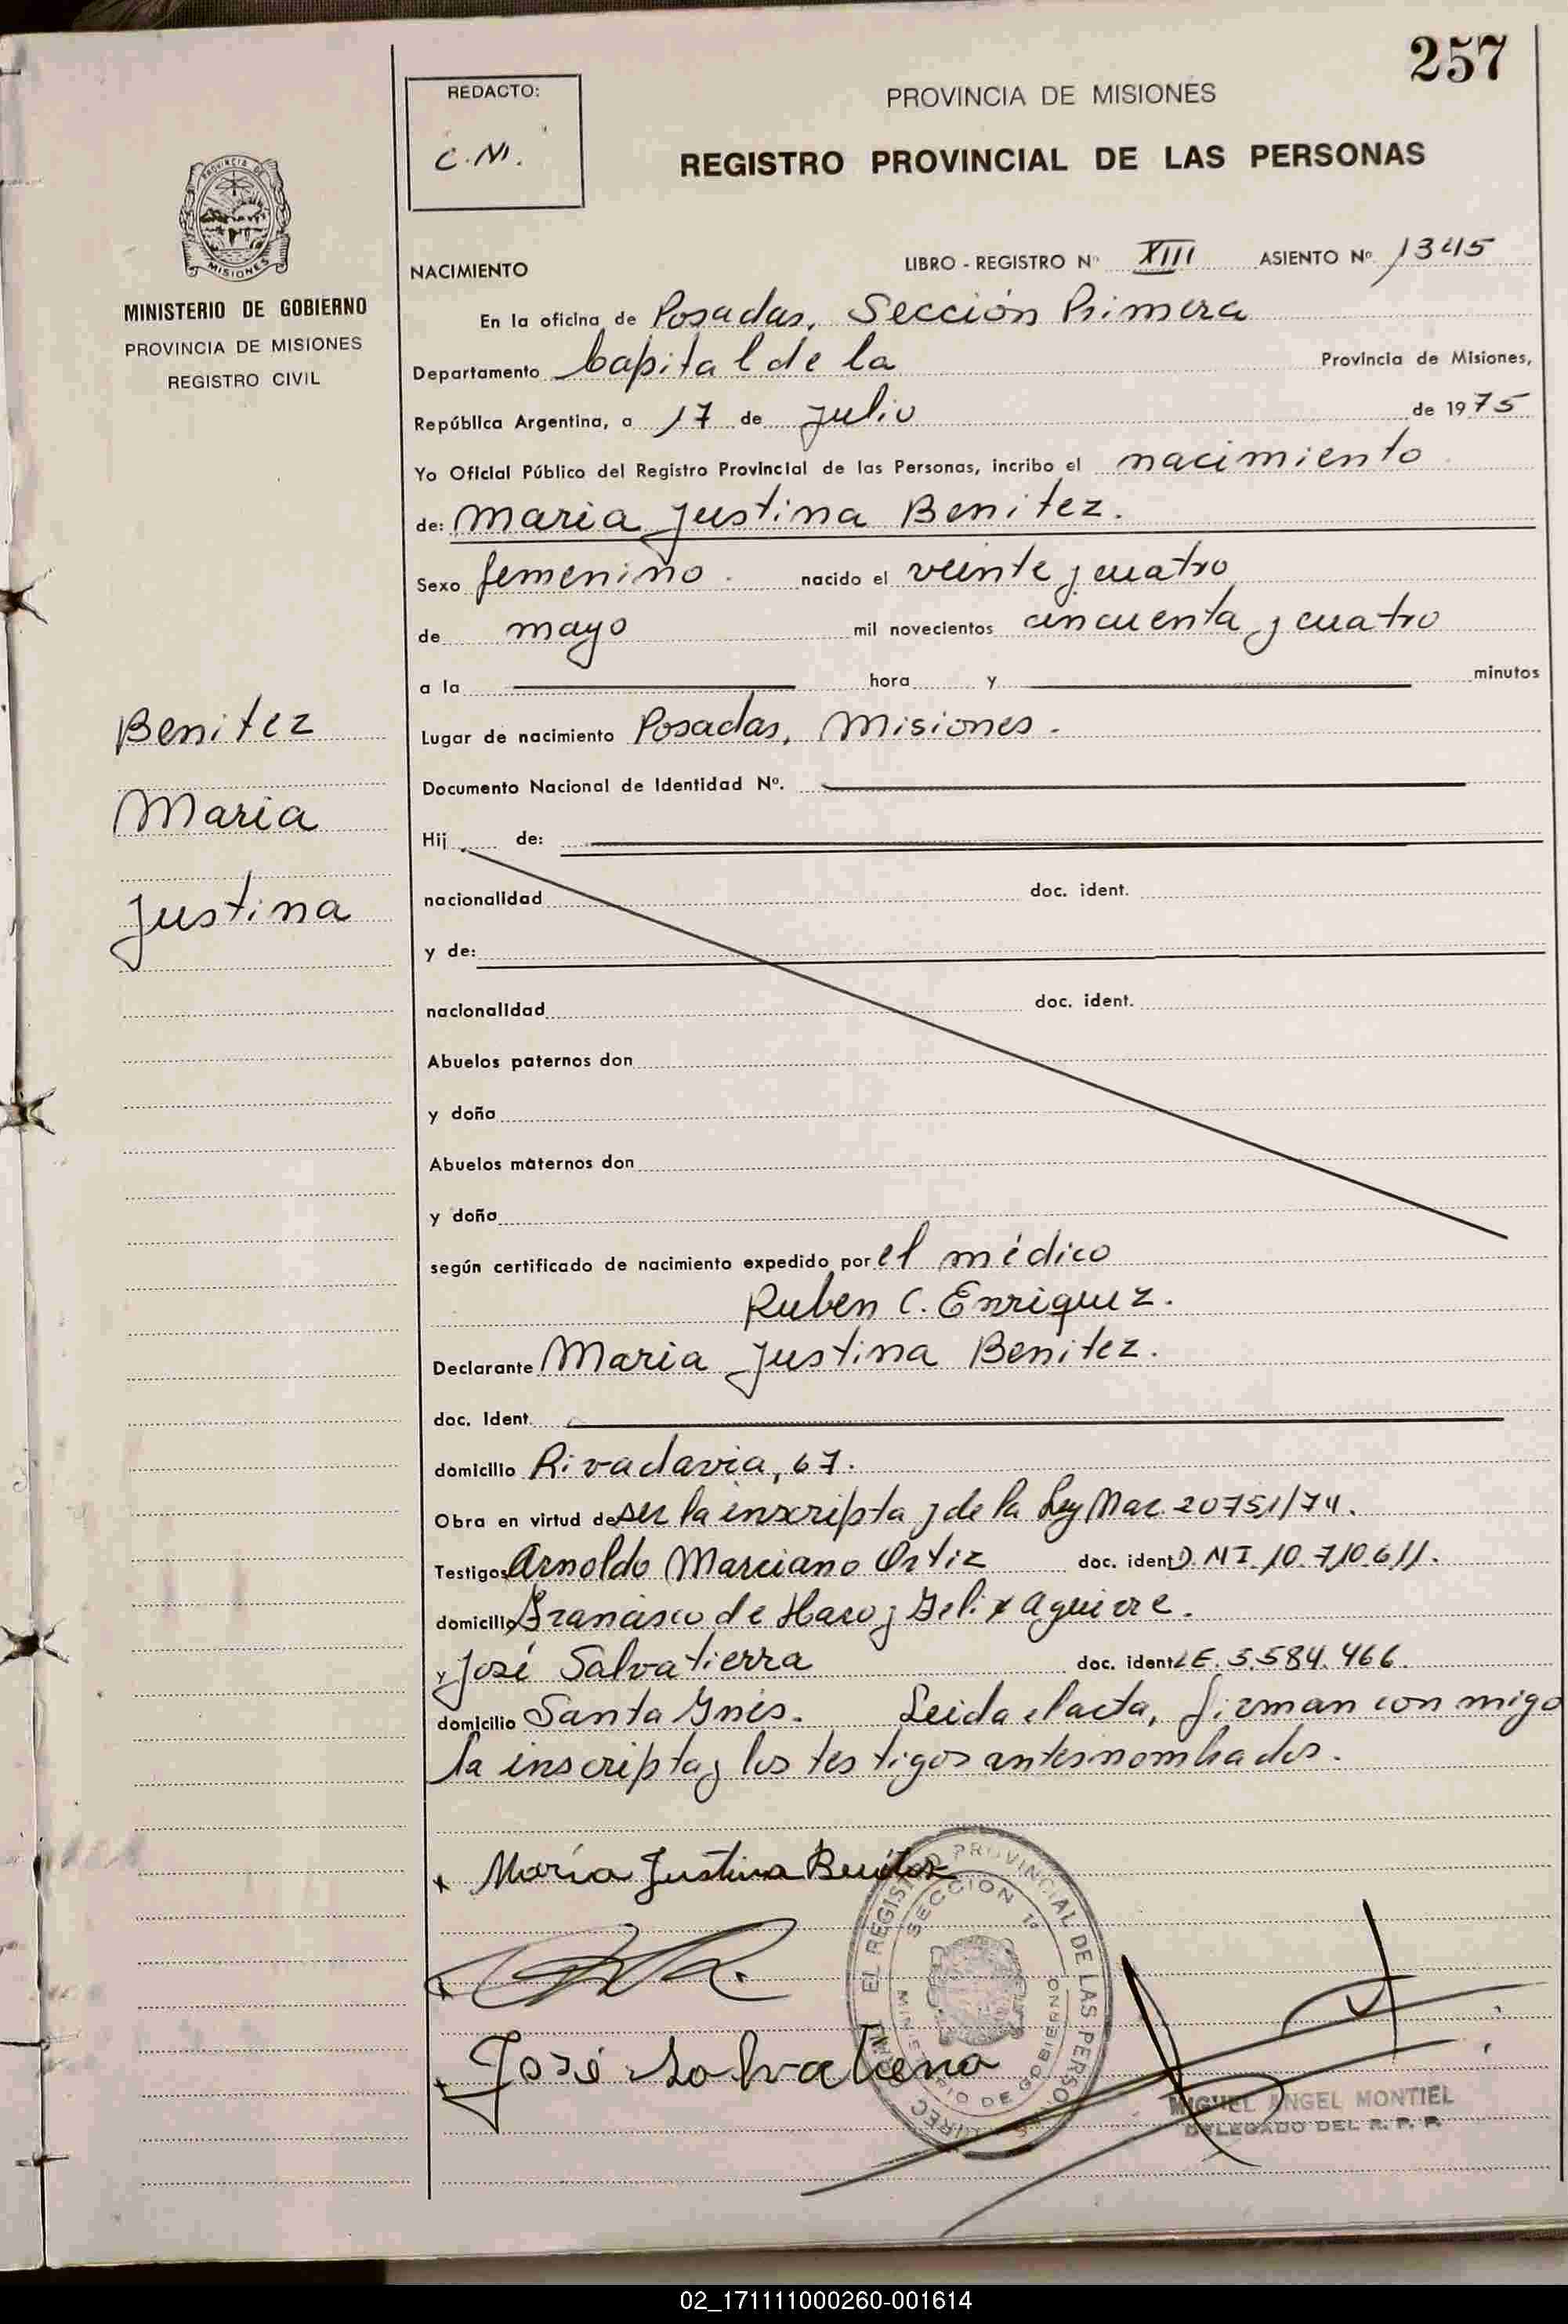 257
REDACTO:
C.M.
PROVINCIA DE MISIONES
REGISTRO PROVINCIAL DE LAS PERSONAS
PROVINCIA DE
MISIONES
MINISTERIO DE GOBIERNO
PROVINCIA DE MISIONES
REGISTRO CIVIL
NACIMIENTO LIBRO - REGISTRO Nº XIII ASIENTO Nº 1345
En la oficina de Posadas, Sección Primera
Departamento Capital de la Provincia de Misiones,
República Argentina, a 17 de Julio de 1975
Yo Oficial Público del Registro Provincial de las Personas, incribo el nacimiento
de: Maria Justina Benitez.
Sexo femenino. nacido el veinte y cuatro
de mayo mil novecientos cincuenta y cuatro
a la hora y minutos
Lugar de nacimiento Posadas, Misiones.
Documento Nacional de Identidad Nº.
Hij de:
nacionalidad doc. ident.
y de:
nacionalidad doc. ident.
Abuelos paternos don
y doña
Abuelos maternos don
y doña
según certificado de nacimiento expedido por el médico
Ruben C. Enriquez.
Declarante Maria Justina Benitez.
doc. Ident.
domicilio Rivadavia, 67.
Obra en virtud de ser la inscripta y de la Ley Nac. 20751/74.
Testigos Arnoldo Marciano Ortiz doc. ident D.N.I. 10.710.611.
domicilio Francisco de Haro y Felix Aguirre.
y José Salvatierra doc. ident L.E. 5.584.466.
domicilio Santa Ynés. Leida el acta, firman con migo
la inscripta y los testigos antesnombrados.
Benitez
Maria
Justina
x María Justina Benitez
José Salvatierra
EL REGISTRO PROVINCIAL DE LAS PERSONAS
SECCION 1ª
MINISTERIO DE GOBIERNO
MIGUEL ANGEL MONTIEL
DELEGADO DEL R. P. P.
02_171111000260-001614